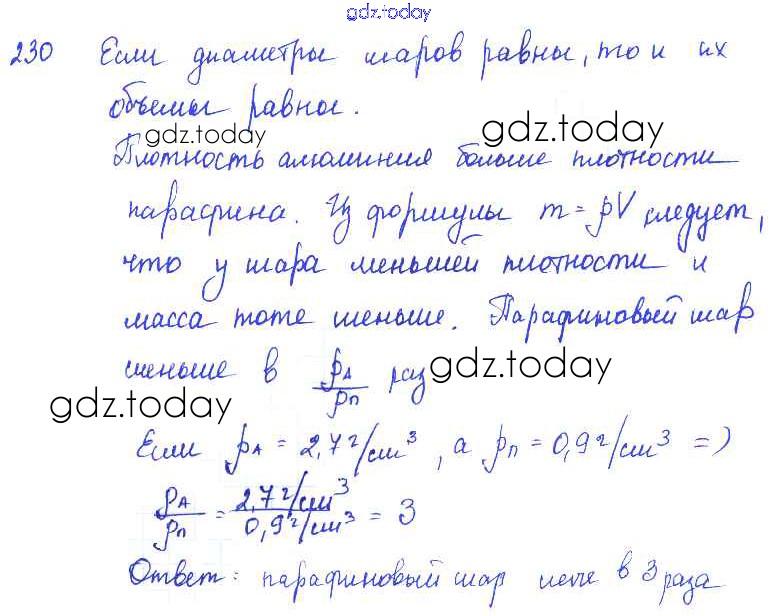 gdz.today
230 Если диаметры шаров равны, то и их
объемы равны.
gdz.today gdz.today
Плотность алюминия больше плотности
парафина. Из формулы m = ρV следует,
что у шара меньшей плотности и
масса тоже меньше. Парафиновый шар
меньше в ρА/ρп раз gdz.today
gdz.today
Если ρА = 2,7 г/см³, а ρп = 0,9 г/см³ =>
ρА/ρп = 2,7 г/см³ / 0,9 г/см³ = 3
Ответ: парафиновый шар легче в 3 раза